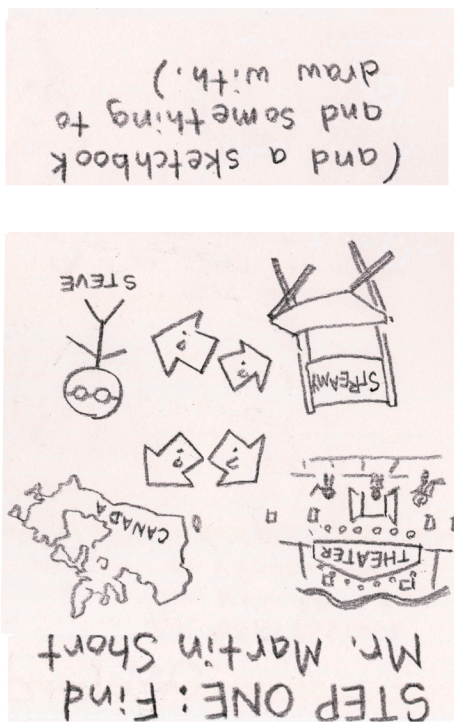 STEP ONE: Find
Mr. Martin Short
THEATER
CANADA
? ?
? ?
STREAMY
STEVE
(and a sketchbook
and something to
draw with.)